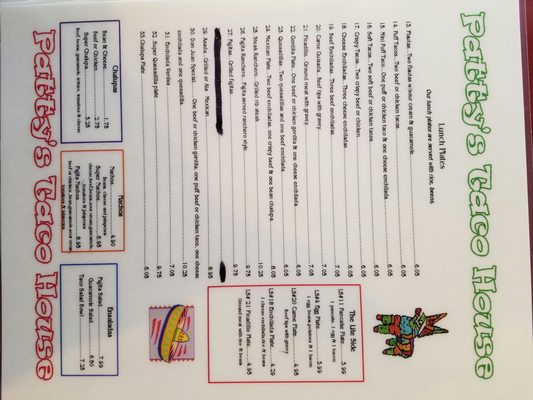 Patty's Taco House
Lunch Plates
Our lunch plates are served with rice, beans
13. Flautas...Two flautas w/sour cream & guacamole......6.05
14. Puff Tacos...Two beef or chicken tacos......6.05
15. Mini Puff Taco...One puff or chicken taco & one cheese enchilada......6.05
16. Soft Tacos...Two soft beef or chicken tacos......6.05
17. Crispy Tacos...Two crispy beef or chicken......6.05
18. Cheese Enchiladas...Three cheese enchiladas......6.05
19. Beef Enchiladas...Three beef enchiladas......7.05
20. Carne Guisada...Beef tips with gravy......7.05
21. Picadillo...Ground meat with gravy......7.05
22. Gordita Plate...One beef or chicken gordita & one cheese enchilada......6.05
23. Quesadillas...Two quesadillas and one beef enchilada......6.05
24. Mexican Plate...Two beef enchiladas, one crispy beef & one bean chalupa......8.05
25. Steak Ranchero...Grilled rib steak......10.25
26. Fajita Ranchero...Fajita served ranchero style......9.75
27. Fajitas...Grilled fajitas......9.75
29. Asada...Grilled or Ala Mexican......8.95
30. Don Juan Special......One beef or chicken gordita, one puff beef or chicken taco, one cheese
enchilada and one quesadilla......10.25
31. Enchilada Verdes......7.05
32. Super Quesadilla plate......9.75
33. Chalupa Plate......6.05
The Lite Side
LS#11 Pancake Plate......3.99
1 pancake, 1 egg & 1 bacon
LS#4 Egg Plate......3.99
1 egg, beans, potatoes & 1 bacon
LS#20 Carne Plate......4.95
Beef tips with gravy
LS#18 Enchilada Plate......4.29
1 cheese enchilada, rice & beans
LS# 21 Picadillo Plate......4.95
Ground meat with rice & beans
Chalupas
Bean & Cheese......1.75
Beef or Chicken......2.75
Super Chalupa......3.25
Beef, beans, guacamole, lettuce, tomatoes & cheese
Nachos
Nachos......4.90
Beans, cheese and jalapenos
Super Nachos......6.95
Fajita Nachos......8.95
Ensaladas
Fajita Salad......7.99
Guacamole Salad......6.50
Taco Salad Bowl......7.25
Patty's Taco House